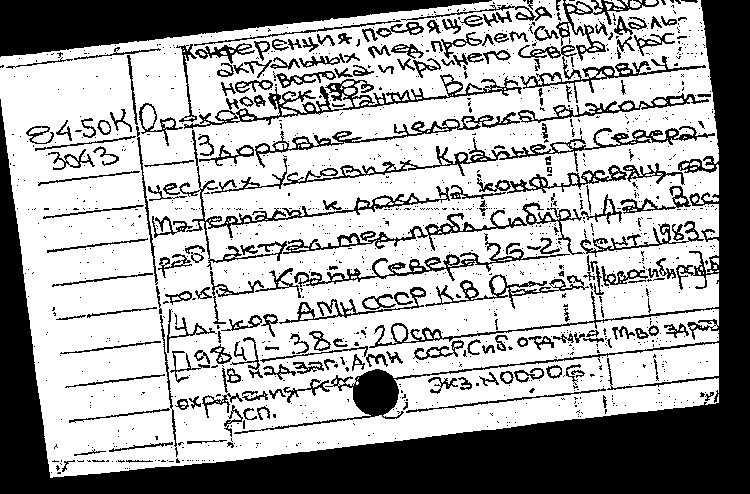 Конференция, посвященная разработке
актуальных мед. проблем Сибири, Даль-
него Востока и Крайнего Севера. Крас-
ноярск. 1983.
84-50К Орехов, Константин Владимирович.
3043 Здоровье человека в экологи-
ческих условиях Крайнего Севера:
Материалы к докл. на конф., посвящ. раз-
раб. актуал. мед. пробл. Сибири, Дал. Вос-
тока и Крайн Севера 26-27 сент. 1983 г.
/Чл.-кор. АМН СССР К.В. Орехов. [Новосибирск]:
[1984] - 38 с.; 20 см
В надзаг.: АМН СССР, Сиб. отд-ние, М-во здраво-
охранения РСФСР
ДСП. Экз. N00006.